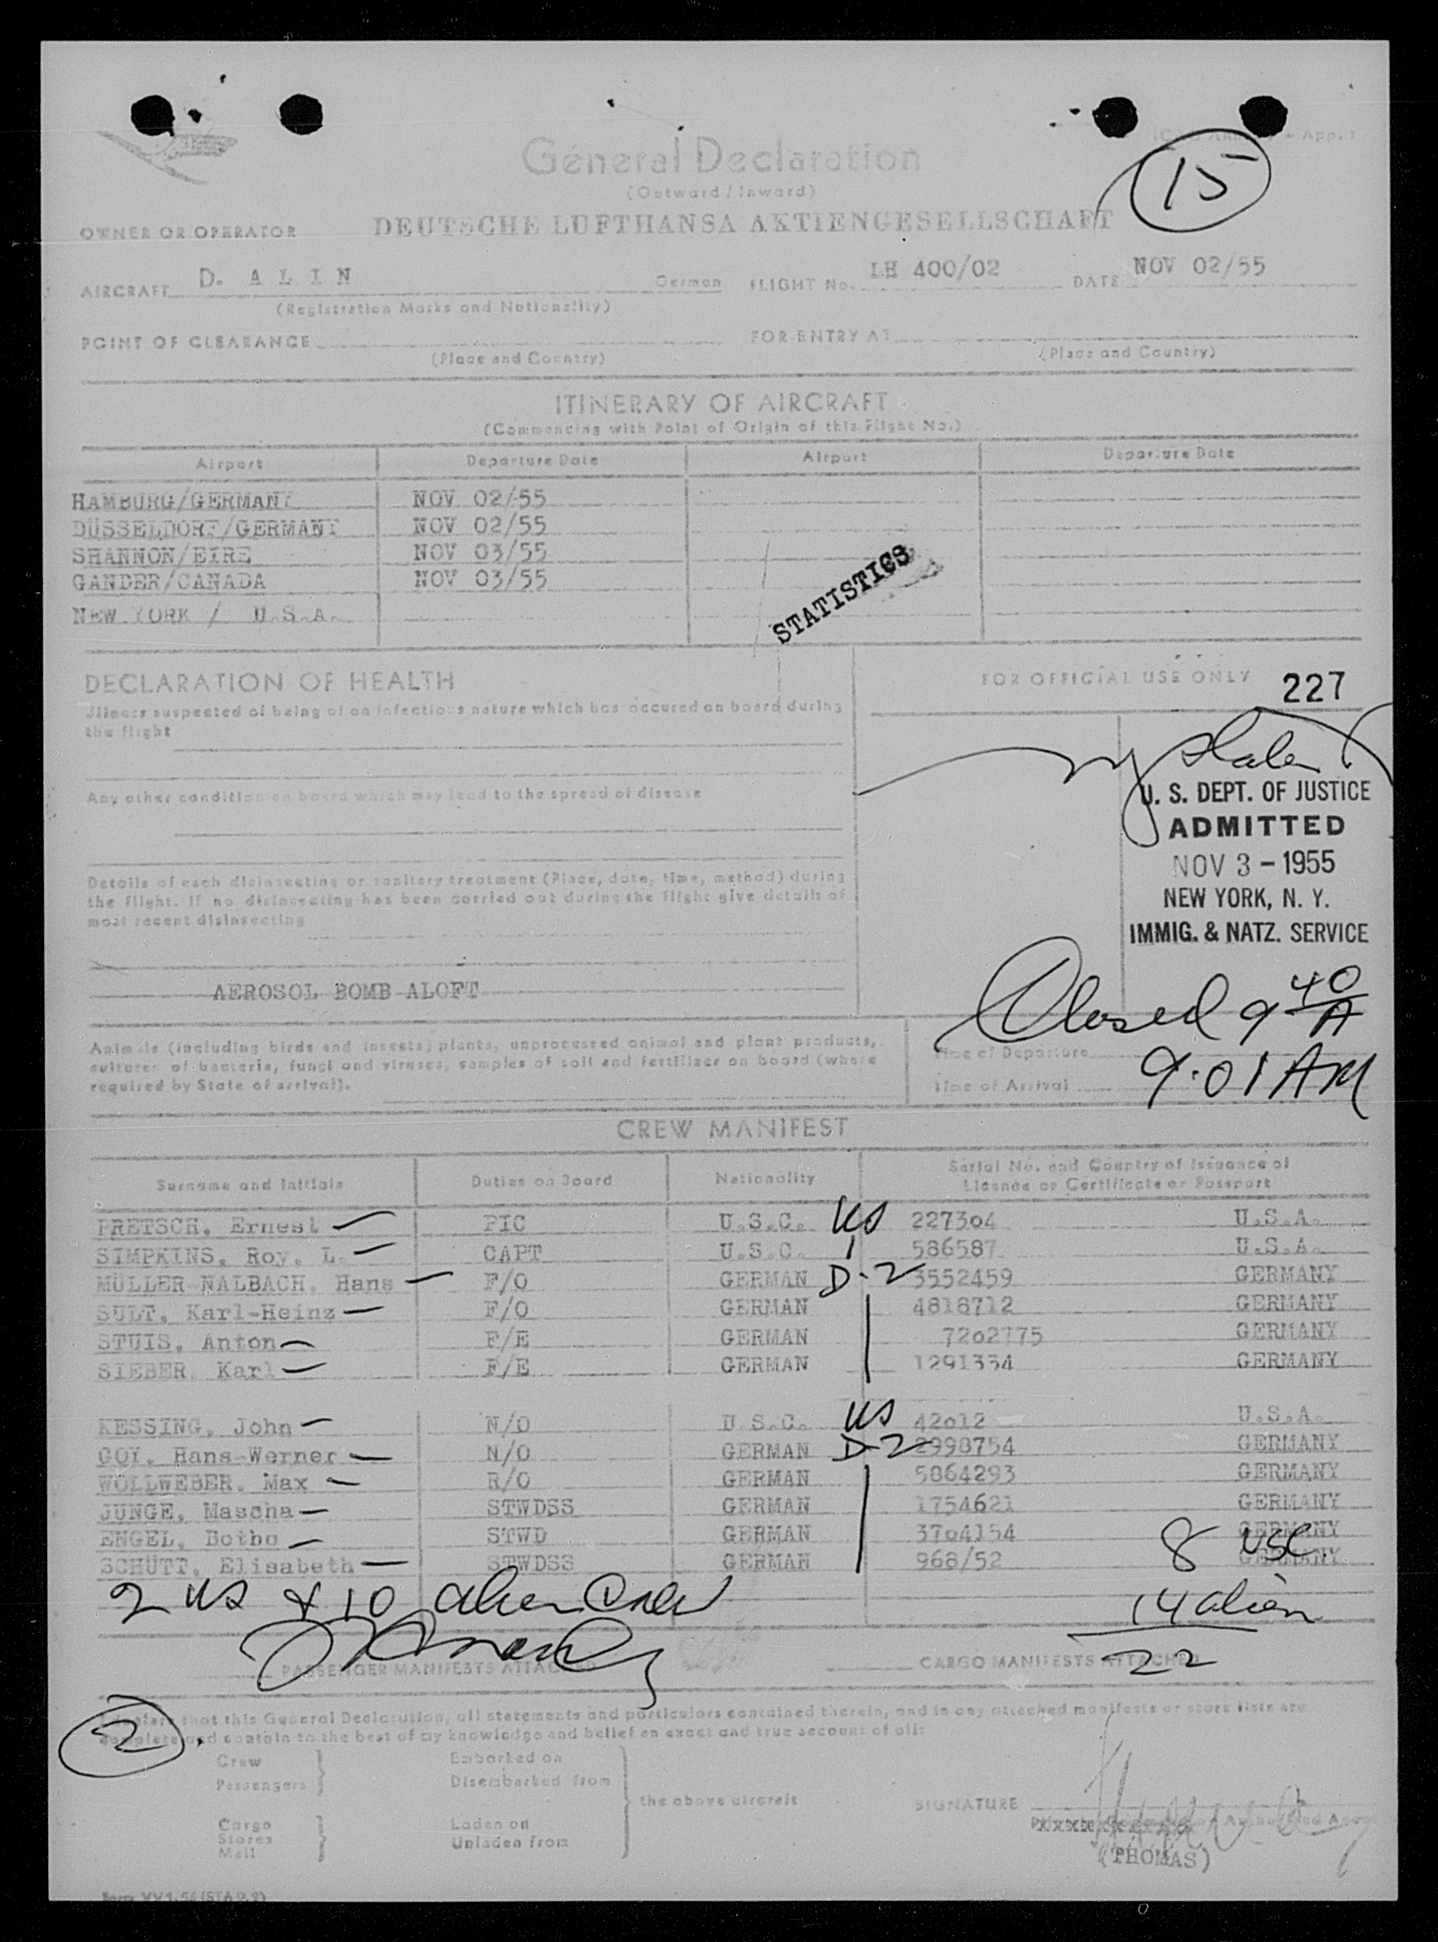 ICAO Annex 9 App. 1
15
General Declaration
(Outward / Inward)
OWNER OR OPERATOR DEUTSCHE LUFTHANSA AKTIENGESELLSCHAFT
AIRCRAFT D. A L I N German FLIGHT No. LH 400/02 DATE NOV 02/55
(Registration Marks and Nationality)
POINT OF CLEARANCE FOR ENTRY AT
(Place and Country) (Place and Country)
ITINERARY OF AIRCRAFT
(Commencing with Point of Origin of this Flight No.)
Airport Departure Date Airport Departure Date
HAMBURG/GERMANY NOV 02/55
DÜSSELDORF/GERMANY NOV 02/55
SHANNON/EIRE NOV 03/55
GANDER/CANADA NOV 03/55
NEW YORK / U.S.A.
STATISTICS
DECLARATION OF HEALTH
Illness suspected of being of an infectious nature which has occured on board during
the flight
Any other condition on board which may lead to the spread of disease
Details of each disinsecting or sanitary treatment (Place, date, time, method) during
the flight. If no disinsecting has been carried out during the flight give details of
most recent disinsecting
AEROSOL BOMB ALOFT
FOR OFFICIAL USE ONLY 227
U. S. DEPT. OF JUSTICE
ADMITTED
NOV 3 - 1955
NEW YORK, N. Y.
IMMIG. & NATZ. SERVICE
Closed 9 40/A
Animals (including birds and insects) plants, unprocessed animal and plant products,
cultures of bacteria, fungi and viruses, samples of soil and fertilizer on board (where
required by State of arrival).
Time of Departure
Time of Arrival 9:01 AM
CREW MANIFEST
Surname and Initials Duties on Board Nationality Serial No. and Country of Issuance of
License or Certificate or Passport
PRETSCH, Ernest PIC U.S.C. US 227304 U.S.A.
SIMPKINS, Roy, L. CAPT U.S.C. 586587 U.S.A.
MÜLLER-NALBACH, Hans F/O GERMAN D-2 3552459 GERMANY
SULT, Karl-Heinz F/O GERMAN 4818712 GERMANY
STUIS, Anton F/E GERMAN 7202775 GERMANY
SIEBER, Karl F/E GERMAN 1291334 GERMANY
KESSING, John N/O U.S.C. US 42012 U.S.A.
GOY, Hans-Werner N/O GERMAN D-2 2998754 GERMANY
WOLLWEBER, Max R/O GERMAN 5864293 GERMANY
JUNGE, Mascha STWDSS GERMAN 1754621 GERMANY
ENGEL, Botho STWD GERMAN 3704154 GERMANY
SCHÜTT, Elisabeth STWDSS GERMAN 968/52 GERMANY
8 USC
2 US & 10 alien crew
14 alien
22
PASSENGER MANIFESTS ATTACHED CARGO MANIFESTS ATTACHED
2
I declare that this General Declaration, all statements and particulars contained therein, and in any attached manifests or store lists are
complete and contain to the best of my knowledge and belief an exact and true account of all:
Crew Embarked on
Passengers Disembarked from
the above aircraft
Cargo Laden on
Stores Unladen from
Mail
SIGNATURE
Authorized Agent
(THOMAS)